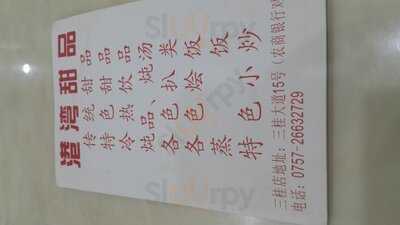 港湾甜品
传统甜品
特色甜品
冷热饮品
炖品、炖汤
各色扒类
各色烩饭
蒸饭
特色小炒
三桂店地址：三桂大道15号（农商银行对
电话：0757-26632729
Sluurpy
Sluurpy